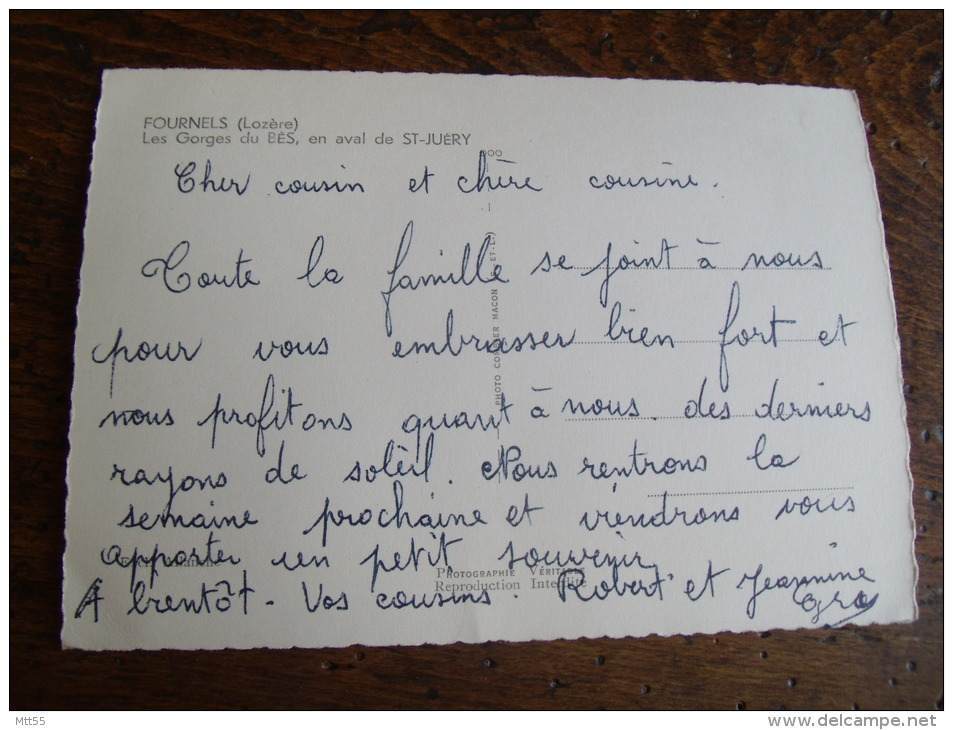 FOURNELS (Lozère)
Les Gorges du BÈS, en aval de ST-JUÉRY
Cher cousin et chère cousine.
Toute la famille se joint à nous
pour vous embrasser bien fort et
nous profitons quant à nous des derniers
rayons de soleil. Nous rentrons la
semaine prochaine et viendrons vous
apporter un petit souvenir
A bientôt - Vos cousins. Robert et Jeannine
PHOTO MACON ET-L.)
PHOTOGRAPHIE VÉRITABLE
Reproduction Interdite
Mtt55
delcampe.net